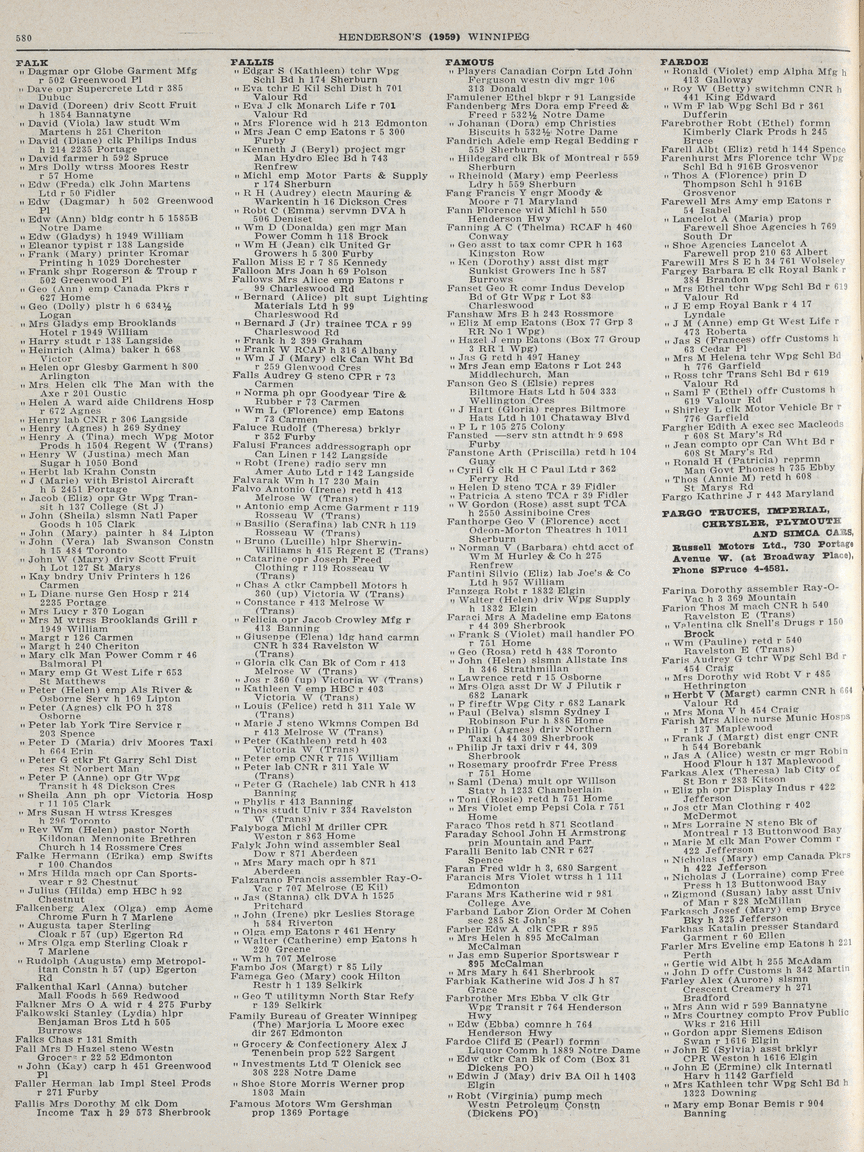 580
HENDERSON'S (1959) WINNIPEG
FALK
" Dagmar opr Globe Garment Mfg
r 502 Greenwood Pl
" Dave opr Supercrete Ltd r 385
Dubuc
" David (Doreen) driv Scott Fruit
h 1854 Bannatyne
" David (Viola) law studt Wm
Martens h 251 Cheriton
" David (Diane) clk Philips Indus
h 214 2235 Portage
" David farmer h 592 Spruce
" Mrs Dolly wtrss Moores Restr
r 57 Home
" Edw (Freda) clk John Martens
Ltd r 50 Fidler
" Edw (Dagmar) h 502 Greenwood
Pl
" Edw (Ann) bldg contr h 5 1585B
Notre Dame
" Edw (Gladys) h 1949 William
" Eleanor typist r 138 Langside
" Frank (Mary) printer Kromar
Printing h 1029 Dorchester
" Frank shpr Rogerson & Troup r
502 Greenwood Pl
" Geo (Ann) emp Canada Pkrs r
627 Home
" Geo (Dolly) plstr h 6 634½
Logan
" Mrs Gladys emp Brooklands
Hotel r 1949 William
" Harry studt r 138 Langside
" Heinrich (Alma) baker h 668
Victor
" Helen opr Glesby Garment h 800
Arlington
" Mrs Helen clk The Man with the
Axe r 201 Oustic
" Helen A ward aide Childrens Hosp
r 672 Agnes
" Henry lab CNR r 306 Langside
" Henry (Agnes) h 269 Sydney
" Henry A (Tina) mech Wpg Motor
Prods h 1504 Regent W (Trans)
" Henry W (Justina) mech Man
Sugar h 1050 Bond
" Herbt lab Krahn Constn
" J (Marie) with Bristol Aircraft
h 5 2451 Portage
" Jacob (Eliz) opr Gtr Wpg Tran-
sit h 137 College (St J)
" John (Sheila) slsmn Natl Paper
Goods h 105 Clark
" John (Mary) painter h 84 Lipton
" John (Vera) lab Swanson Constn
h 15 484 Toronto
" John W (Mary) driv Scott Fruit
h Lot 127 St Marys
" Kay bndry Univ Printers h 126
Carmen
" L Diane nurse Gen Hosp r 214
2235 Portage
" Mrs Lucy r 370 Logan
" Mrs M wtrss Brooklands Grill r
1949 William
" Margt r 126 Carmen
" Margt h 240 Cheriton
" Mary clk Man Power Comm r 46
Balmoral Pl
" Mary emp Gt West Life r 653
St Matthews
" Peter (Helen) emp Als River &
Osborne Serv h 169 Lipton
" Peter (Agnes) clk PO h 378
Osborne
" Peter lab York Tire Service r
203 Spence
" Peter D (Maria) driv Moores Taxi
h 664 Erin
" Peter G ctkr Ft Garry Schl Dist
res St Norbert Man
" Peter P (Anne) opr Gtr Wpg
Transit h 48 Dickson Cres
" Sheila Ann ph opr Victoria Hosp
r 11 105 Clark
" Mrs Susan H wtrss Kresges
h 296 Toronto
" Rev Wm (Helen) pastor North
Kildonan Mennonite Brethren
Church h 14 Rossmere Cres
Falke Hermann (Erika) emp Swifts
r 100 Chandos
" Mrs Hilda mach opr Can Sports-
wear r 92 Chestnut
" Julius (Hilda) emp HBC h 92
Chestnut
Falkenberg Alex (Olga) emp Acme
Chrome Furn h 7 Marlene
" Augusta taper Sterling
Cloak r 57 (up) Egerton Rd
" Mrs Olga emp Sterling Cloak r
7 Marlene
" Rudolph (Augusta) emp Metropol-
itan Constn h 57 (up) Egerton
Rd
Falkenthal Karl (Anna) butcher
Mall Foods h 569 Redwood
Falkner Mrs O A wid r 4 275 Furby
Falkowski Stanley (Lydia) hlpr
Benjaman Bros Ltd h 505
Burrows
Falks Chas r 131 Smith
Fall Mrs D Hazel steno Westn
Grocers r 22 52 Edmonton
" John (Kay) carp h 451 Greenwood
Pl
Faller Herman lab Impl Steel Prods
r 271 Furby
Fallis Mrs Dorothy M clk Dom
Income Tax h 29 573 Sherbrook
FALLIS
" Edgar S (Kathleen) tchr Wpg
Schl Bd h 174 Sherburn
" Eva tchr E Kil Schl Dist h 701
Valour Rd
" Eva J clk Monarch Life r 701
Valour Rd
" Mrs Florence wid h 213 Edmonton
" Mrs Jean C emp Eatons r 5 300
Furby
" Kenneth J (Beryl) project mgr
Man Hydro Elec Bd h 743
Renfrew
" Michl emp Motor Parts & Supply
r 174 Sherburn
" R H (Audrey) electn Mauring &
Warkentin h 16 Dickson Cres
" Robt C (Emma) servmn DVA h
506 Deniset
" Wm D (Donalda) gen mgr Man
Power Comm h 118 Brock
" Wm H (Jean) clk United Gr
Growers h 5 300 Furby
Fallon Miss E r 7 85 Kennedy
Falloon Mrs Joan h 69 Polson
Fallows Mrs Alice emp Eatons r
99 Charleswood Rd
" Bernard (Alice) plt supt Lighting
Materials Ltd h 99
Charleswood Rd
" Bernard J (Jr) trainee TCA r 99
Charleswood Rd
" Frank h 2 399 Graham
" Frank W RCAF h 316 Albany
" Wm J J (Mary) clk Can Wht Bd
r 259 Glenwood Cres
Falls Audrey G steno CPR r 73
Carmen
" Norma ph opr Goodyear Tire &
Rubber r 73 Carmen
" Wm L (Florence) emp Eatons
r 73 Carmen
Faluce Rudolf (Theresa) brklyr
r 352 Furby
Falusi Frances addressograph opr
Can Linen r 142 Langside
" Robt (Irene) radio serv mn
Amer Auto Ltd r 142 Langside
Falvarak Wm h 17 230 Main
Falvo Antonio (Irene) retd h 413
Melrose W (Trans)
" Antonio emp Acme Garment r 119
Rosseau W (Trans)
" Basilio (Serafina) lab CNR h 119
Rosseau W (Trans)
" Bruno (Lucille) hlpr Sherwin-
Williams h 415 Regent E (Trans)
" Catarine opr Joseph Freed
Clothing r 119 Rosseau W
(Trans)
" Chas A ctkr Campbell Motors h
360 (up) Victoria W (Trans)
" Constance r 413 Melrose W
(Trans)
" Felicia opr Jacob Crowley Mfg r
413 Banning
" Giuseppe (Elena) ldg hand carmn
CNR h 334 Ravelston W
(Trans)
" Gloria clk Can Bk of Com r 413
Melrose W (Trans)
" Jos r 360 (up) Victoria W (Trans)
" Kathleen V emp HBC r 403
Victoria W (Trans)
" Louis (Felice) retd h 311 Yale W
(Trans)
" Marie J steno Wkmns Compen Bd
r 413 Melrose W (Trans)
" Peter (Kathleen) retd h 403
Victoria W (Trans)
" Peter emp CNR r 715 William
" Peter lab CNR r 311 Yale W
(Trans)
" Peter G (Rachele) lab CNR h 413
Banning
" Phylis r 413 Banning
" Thos studt Univ r 334 Ravelston
W (Trans)
Falyboga Michl M driller CPR
Weston r 863 Home
Falyk John wind assembler Seal
Dow r 871 Aberdeen
" Mrs Mary mach opr h 871
Aberdeen
Falzarano Francis assembler Ray-O-
Vac r 707 Melrose (E Kil)
" Jas (Stanna) clk DVA h 1525
Pritchard
" John (Irene) pkr Leslies Storage
h 584 Riverton
" Olga emp Eatons r 461 Henry
" Walter (Catherine) emp Eatons h
220 Greene
" Wm h 707 Melrose
Fambo Jos (Margt) r 85 Lily
Famega Geo (Mary) cook Hilton
Restr h 1 139 Selkirk
" Geo T utilitymn North Star Refy
r 139 Selkirk
Family Bureau of Greater Winnipeg
(The) Marjoria L Moore exec
dir 267 Edmonton
" Grocery & Confectionery Alex J
Tenenbein prop 522 Sargent
" Investments Ltd T Olenick sec
308 228 Notre Dame
" Shoe Store Morris Werner prop
1803 Main
Famous Motors Wm Gershman
prop 1369 Portage
FAMOUS
" Players Canadian Corpn Ltd John
Ferguson westn div mgr 106
313 Donald
Famulener Ethel bkpr r 91 Langside
Fandenberg Mrs Dora emp Freed &
Freed r 532½ Notre Dame
" Johanan (Dora) emp Christies
Biscuits h 532½ Notre Dame
Fandrich Adele emp Regal Bedding r
559 Sherburn
" Hildegard clk Bk of Montreal r 559
Sherburn
" Rheinold (Mary) emp Peerless
Ldry h 559 Sherburn
Fang Francis Y engr Moody &
Moore r 71 Maryland
Fann Florence wid Michl h 550
Henderson Hwy
Fanning A C (Thelma) RCAF h 460
Conway
" Geo asst to tax comr CPR h 163
Kingston Row
" Ken (Dorothy) asst dist mgr
Sunkist Growers Inc h 587
Burrows
Fanset Geo R comr Indus Develop
Bd of Gtr Wpg r Lot 83
Charleswood
Fanshaw Mrs B h 243 Rossmore
" Eliz M emp Eatons (Box 77 Grp 3
RR No 1 Wpg)
" Hazel J emp Eatons (Box 77 Group
3 RR 1 Wpg)
" Jas G retd h 497 Haney
" Mrs Jean emp Eatons r Lot 243
Middlechurch, Man
Fanson Geo S (Elsie) repres
Biltmore Hats Ltd h 504 333
Wellington Cres
" J Hart (Gloria) repres Biltmore
Hats Ltd h 101 Chataway Blvd
" P L r 105 275 Colony
Fansted —serv stn attndt h 9 698
Furby
Fanstone Arth (Priscilla) retd h 104
Guay
" Cyril G clk H C Paul Ltd r 362
Ferry Rd
" Helen D steno TCA r 39 Fidler
" Patricia A steno TCA r 39 Fidler
" W Gordon (Rose) asst supt TCA
h 2550 Assiniboine Cres
Fanthorpe Geo V (Florence) acct
Odeon-Morton Theatres h 1011
Sherburn
" Norman V (Barbara) chtd acct of
Wm M Hurley & Co h 275
Renfrew
Fantini Silvio (Eliz) lab Joe's & Co
Ltd h 957 William
Fanzega Robt r 1832 Elgin
" Walter (Helen) driv Wpg Supply
h 1832 Elgin
Faraci Mrs A Madeline emp Eatons
r 44 309 Sherbrook
" Frank S (Violet) mail handler PO
r 751 Home
" Geo (Rosa) retd h 438 Toronto
" John (Helen) slsmn Allstate Ins
h 346 Strathmillan
" Lawrence retd r 15 Osborne
" Mrs Olga asst Dr W J Pilutik r
682 Lanark
" P fireftr Wpg City r 682 Lanark
" Paul (Delva) slsmn Sydney I
Robinson Fur h 886 Home
" Philip (Agnes) driv Northern
Taxi h 44 309 Sherbrook
" Philip Jr taxi driv r 44, 309
Sherbrook
" Rosemary proofrdr Free Press
r 751 Home
" Saml (Dena) mult opr Willson
Staty h 1233 Chamberlain
" Toni (Rosie) retd h 751 Home
" Mrs Violet emp Pepsi Cola r 751
Home
Faraco Thos retd h 871 Scotland
Faraday School John H Armstrong
prin Mountain and Parr
Faralli Benito lab CNR r 627
Spence
Faran Fred wldr h 3, 680 Sargent
Farancis Mrs Violet wtrss h 1 111
Edmonton
Farans Mrs Katherine wid r 981
College Ave
Farband Labor Zion Order M Cohen
sec 285 St John's
Farber Edw A clk CPR r 895
" Mrs Helen h 895 McCalman
McCalman
" Jas emp Superior Sportswear r
895 McCalman
" Mrs Mary h 641 Sherbrook
Farbiak Katherine wid Jos J h 87
Grace
Farbrother Mrs Ebba V clk Gtr
Wpg Transit r 764 Henderson
Hwy
" Edw (Ebba) comnre h 764
Henderson Hwy
Fardoe Clifd E (Pearl) formn
Liquor Comm h 1889 Notre Dame
" Edw ctkr Can Bk of Com (Box 31
Dickens PO)
" Edwin J (May) driv BA Oil h 1403
Elgin
" Robt (Virginia) pump mech
Westn Petroleum Constn
(Dickens PO)
FARDOE
" Ronald (Violet) emp Alpha Mfg h
413 Galloway
" Roy W (Betty) switchmn CNR h
441 King Edward
" Wm F lab Wpg Schl Bd r 361
Dufferin
Farebrother Robt (Ethel) formn
Kimberly Clark Prods h 245
Bruce
Farell Albt (Eliz) retd h 144 Spence
Farenhurst Mrs Florence tchr Wpg
Schl Bd h 916B Grosvenor
" Thos A (Florence) prin D
Thompson Schl h 916B
Grosvenor
Farewell Mrs Amy emp Eatons r
54 Isabel
" Lancelot A (Maria) prop
Farewell Shoe Agencies h 769
South Dr
" Shoe Agencies Lancelot A
Farewell prop 210 63 Albert
Farewill Mrs S E h 34 761 Wolseley
Fargey Barbara E clk Royal Bank r
384 Brandon
" Mrs Ethel tchr Wpg Schl Bd r 619
Valour Rd
" J E emp Royal Bank r 4 17
Lyndale
" J M (Anne) emp Gt West Life r
473 Roberta
" Jas S (Frances) offr Customs h
63 Cedar Pl
" Mrs M Helena tchr Wpg Schl Bd
h 776 Garfield
" Ross tchr Trans Schl Bd r 619
Valour Rd
" Saml F (Ethel) offr Customs h
619 Valour Rd
" Shirley L clk Motor Vehicle Br r
776 Garfield
Fargher Edith A exec sec Macleods
r 608 St Mary's Rd
" Jean compto opr Can Wht Bd r
608 St Mary's Rd
" Ronald H (Patricia) reprmn
Man Govt Phones h 735 Ebby
" Thos (Annie M) retd h 608
St Marys Rd
Fargo Kathrine J r 443 Maryland
FARGO TRUCKS, IMPERIAL,
CHRYSLER, PLYMOUTH
AND SIMCA CARS,
Russell Motors Ltd., 730 Portage
Avenue W. (at Broadway Place),
Phone SPruce 4-4581.
Farina Dorothy assembler Ray-O-
Vac h 3 369 Mountain
Farion Thos M mach CNR h 540
Ravelston E (Trans)
" Valentina clk Snell's Drugs r 150
Brock
" Wm (Pauline) retd r 540
Ravelston E (Trans)
Faris Audrey G tchr Wpg Schl Bd r
454 Craig
" Mrs Dorothy wid Robt V r 485
Hethrington
" Herbt V (Margt) carmn CNR h 664
Valour Rd
" Mrs Mona V h 454 Craig
Farish Mrs Alice nurse Munic Hosps
r 137 Maplewood
" Frank J (Margt) dist engr CNR
h 544 Borebank
" Jas A (Alice) westn cr mgr Robin
Hood Flour h 137 Maplewood
Farkas Alex (Theresa) lab City of
St Bon r 283 Kitson
" Eliz ph opr Display Indus r 422
Jefferson
" Jos ctr Man Clothing r 402
McDermot
" Mrs Lorraine N steno Bk of
Montreal r 13 Buttonwood Bay
" Marie M clk Man Power Comm r
422 Jefferson
" Nicholas (Mary) emp Canada Pkrs
h 422 Jefferson
" Nicholas J (Lorraine) comp Free
Press h 13 Buttonwood Bay
" Zigmond (Susan) laby asst Univ
of Man r 828 McMillan
Farkasch Josef (Mary) emp Bryce
Bky h 325 Jefferson
Farkhas Katalin presser Standard
Garment r 60 Ellen
Farler Mrs Eveline emp Eatons h 221
Perth
" Gertie wid Albt h 255 McAdam
" John D offr Customs h 342 Martin
Farley Alex (Aurore) slsmn
Crescent Creamery h 271
Bradford
" Mrs Ann wid r 599 Bannatyne
" Mrs Courtney compto Prov Public
Wks r 216 Hill
" Gordon appr Siemens Edison
Swan r 1616 Elgin
" John E (Sylvia) asst brklyr
CPR Weston h 1616 Elgin
" John E (Ermine) clk Internatl
Harv h 1142 Garfield
" Mrs Kathleen tchr Wpg Schl Bd h
1323 Downing
" Mary emp Bonar Bemis r 904
Banning